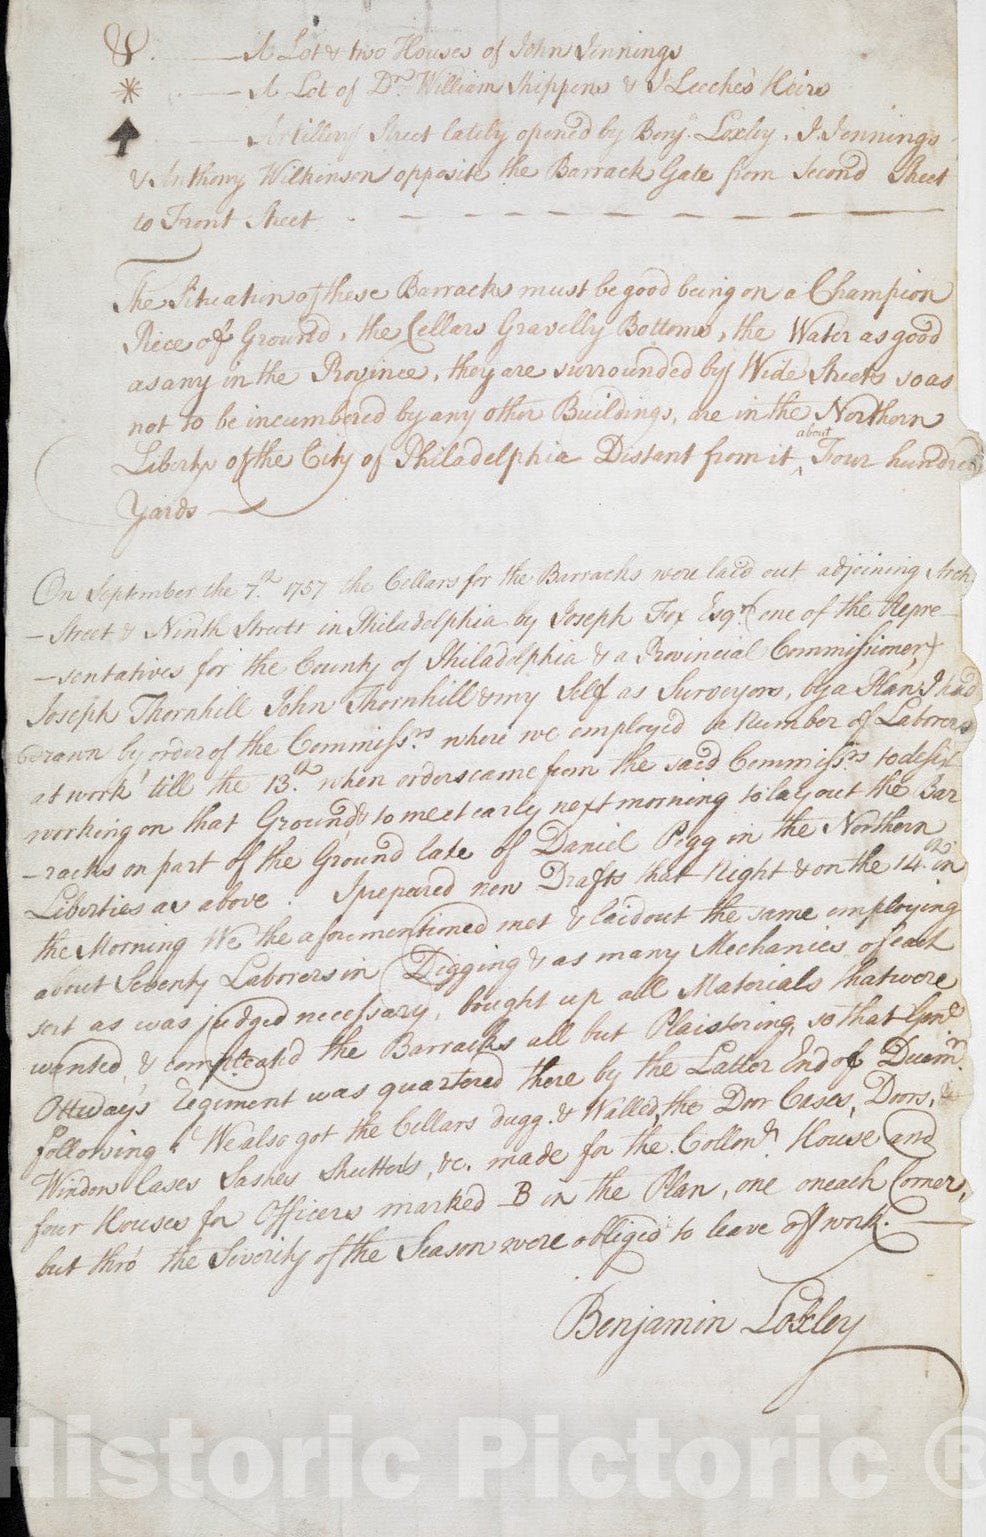 A Lot & two Houses of John Jennings
A Lot of Dr. William Shippens & J Leeches Heirs
Artillery Street lately opened by Benj. Loxley, J. Jennings
& Anthony Wilkinson opposite the Barrack Gate from Second Street
to Front Street.
The Situation of these Barracks must be good being on a Champion
Piece of Ground, the Cellars Gravelly Bottoms, the Water as good
as any in the Province, they are surrounded by Wide Streets so as
not to be incumbered by any other Buildings, are in the Northern
Liberty of the City of Philadelphia Distant from it about Four hundred
Yards
On September the 7th. 1757 the Cellars for the Barracks were laid out adjoining Arch
-Street & Ninth Streets in Philadelphia by Joseph Fox Esqr. (one of the Repre-
-sentatives for the County of Philadelphia & a Provincial Commissioner)
Joseph Thornhill John Thornhill & my Self as Surveyors, by a Plan I had
Drawn by order of the Commissrs. where we employed a Number of Laborers
at work till the 13th. when orders came from the said Commissrs to desist
working on that Ground, & to meet early next morning to lay out the Bar
-racks on part of the Ground late of Daniel Pegg in the Northern
Liberties as above. I prepared new Drafts that Night & on the 14th. in
the Morning We the aforementioned met & laid out the same employing
about Seventy Laborers in Digging & as many Mechanics of each
sort as was judged necessary, bought up all Materials that were
wanted, & compleated the Barracks all but Plaistering, so that Genl.
Ottway's Regiment was quartered there by the Latter End of Decemr.
following. We also got the Cellars dugg. & Walled, the Door Cases, Doors, &
Window Cases Sashes Shutters, &c. made for the Collonls. House and
four Houses for Officers marked B in the Plan, one on each Corner,
but thro' the Severity of the Season were obliged to leave off work.
Benjamin Loxley
Historic Pictoric ®